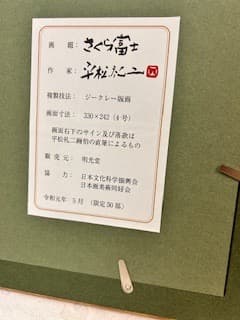 画題：さくら富士
作家：平松礼二
複製技法：ジークレー版画
画面寸法：330×242（4号）
画面右下のサイン及び落款は
平松礼二画伯の直筆によるもの
販売元：明光堂
協力：日本文化科学振興会
日本画美術同好会
令和元年 5月（限定50部）